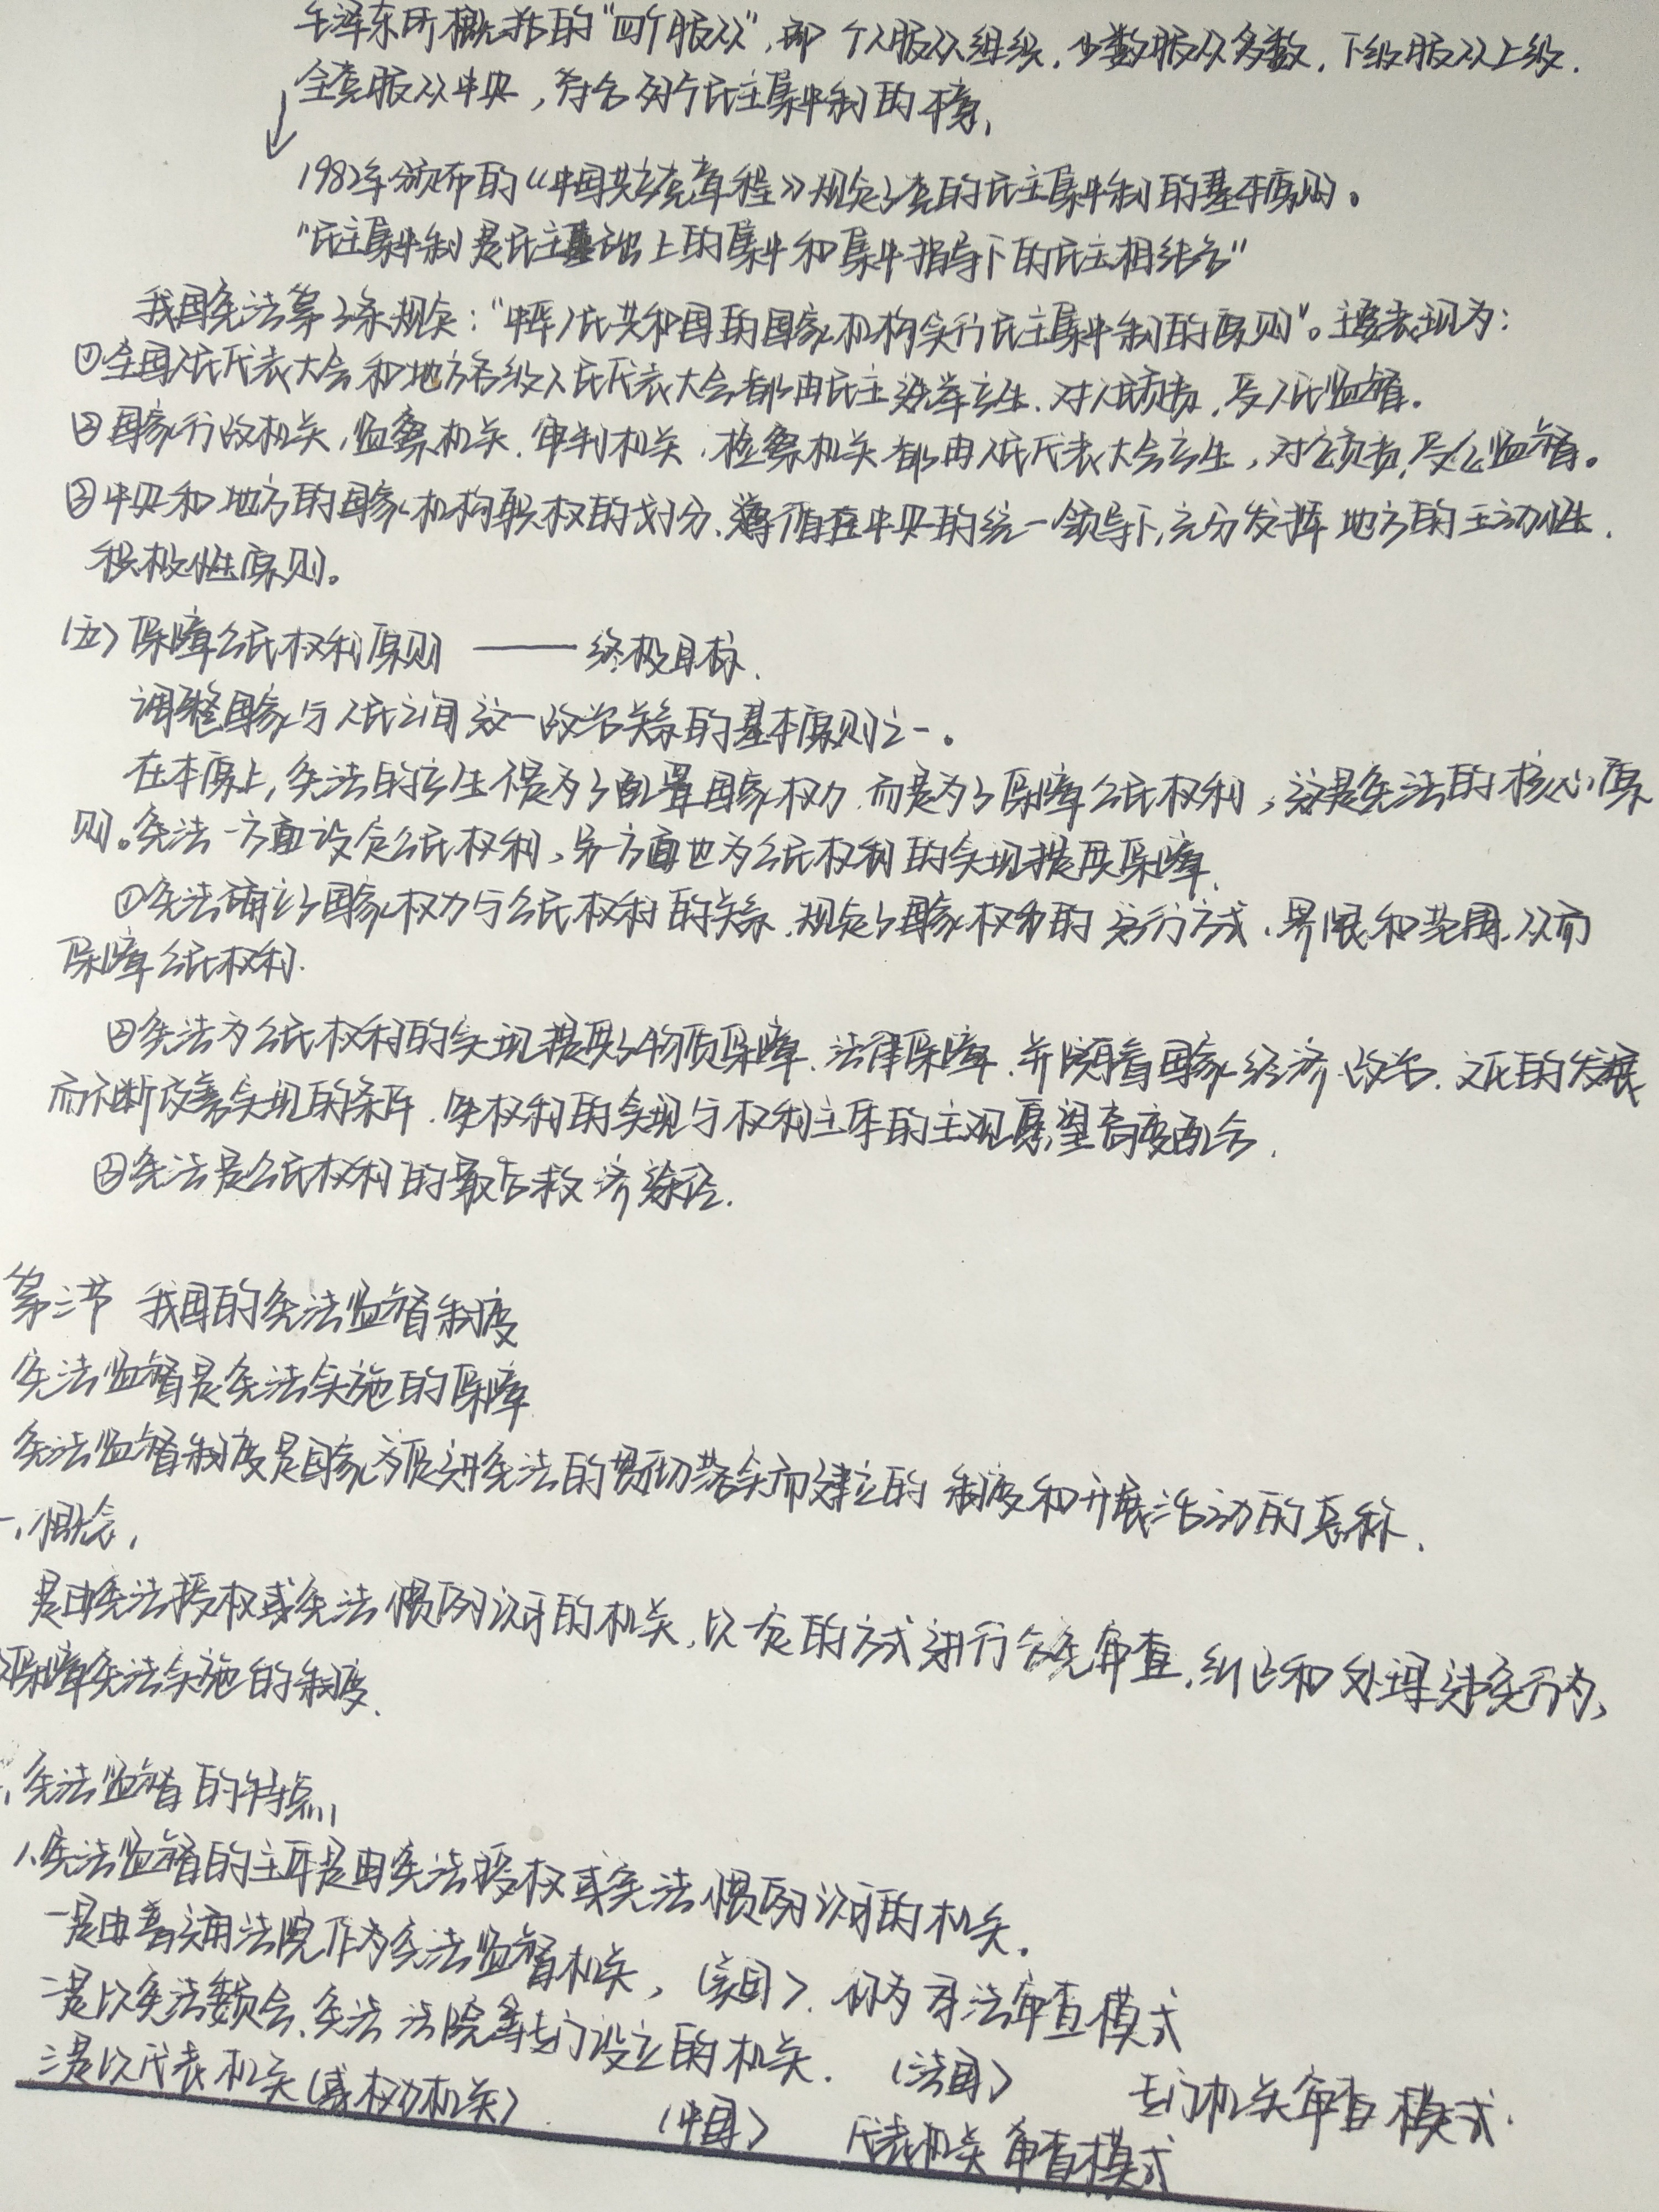 毛泽东所概括的"四个服从",即个人服从组织,少数服从多数,下级服从上级,
全党服从中央,符合列宁民主集中制的本意,
↓
1982年颁布的《中国共产党章程》规定了党的民主集中制的基本原则。
"民主集中制是民主基础上的集中和集中指导下的民主相结合"
我国宪法第3条规定:"中华人民共和国的国家机构实行民主集中制的原则"。主要表现为:
①全国人民代表大会和地方各级人民代表大会都由民主选举产生,对人民负责,受人民监督。
②国家行政机关,监察机关,审判机关,检察机关都由人民代表大会产生,对它负责,受它监督。
③中央和地方的国家机构职权的划分,遵循在中央的统一领导下,充分发挥地方的主动性,
积极性原则。
(五)保障公民权利原则 —— 终极目标.
调整国家与人民之间这一政治关系的基本原则之一。
在本原上,宪法的产生不是为了配置国家权力,而是为了保障公民权利,这是宪法的核心原
则。宪法一方面设定公民权利,另一方面也为公民权利的实现提供保障.
①宪法确立了国家权力与公民权利的关系,规定了国家权力的运行方式,界限和范围,从而
保障公民权利.
②宪法为公民权利的实现提供了物质保障,法律保障,并随着国家经济,政治,文化的发展
而不断改善实现的条件,使权利的实现与权利主体的主观愿望高度配合.
③宪法是公民权利的最后救济途径.
第三节 我国的宪法监督制度
宪法监督是宪法实施的保障
宪法监督制度是国家为促进宪法的贯彻落实而建立的制度和开展活动的总称.
一、概念,
是由宪法授权或宪法惯例认可的机关,以一定的方式进行合宪审查,纠正和处理违宪行为,
保障宪法实施的制度.
、宪法监督的特点,
1.宪法监督的主体是由宪法授权或宪法惯例认可的机关.
一是由普通法院作为宪法监督机关,(美国),称为司法审查模式
二是以宪法委员会、宪法法院等专门设立的机关. (法国) 专门机关审查模式.
三是以代表机关(或权力机关). (中国) 代表机关审查模式